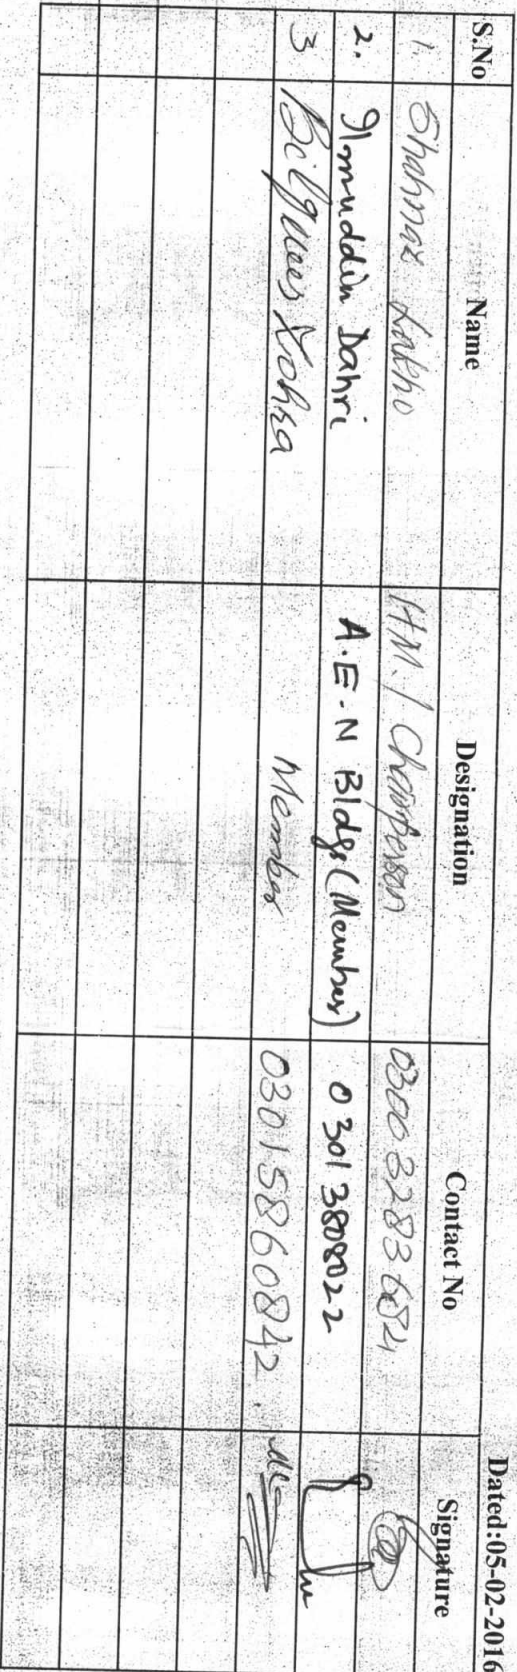 Dated:05-02-2016
S.No Name Designation Contact No Signature
1. Shahnaz Lakho HM./ Chairperson
2. Ilmuddin Dahri A.E.N Bldgs (Member) 0301 3808022
3 Bilquees Zohra Member 03015860842